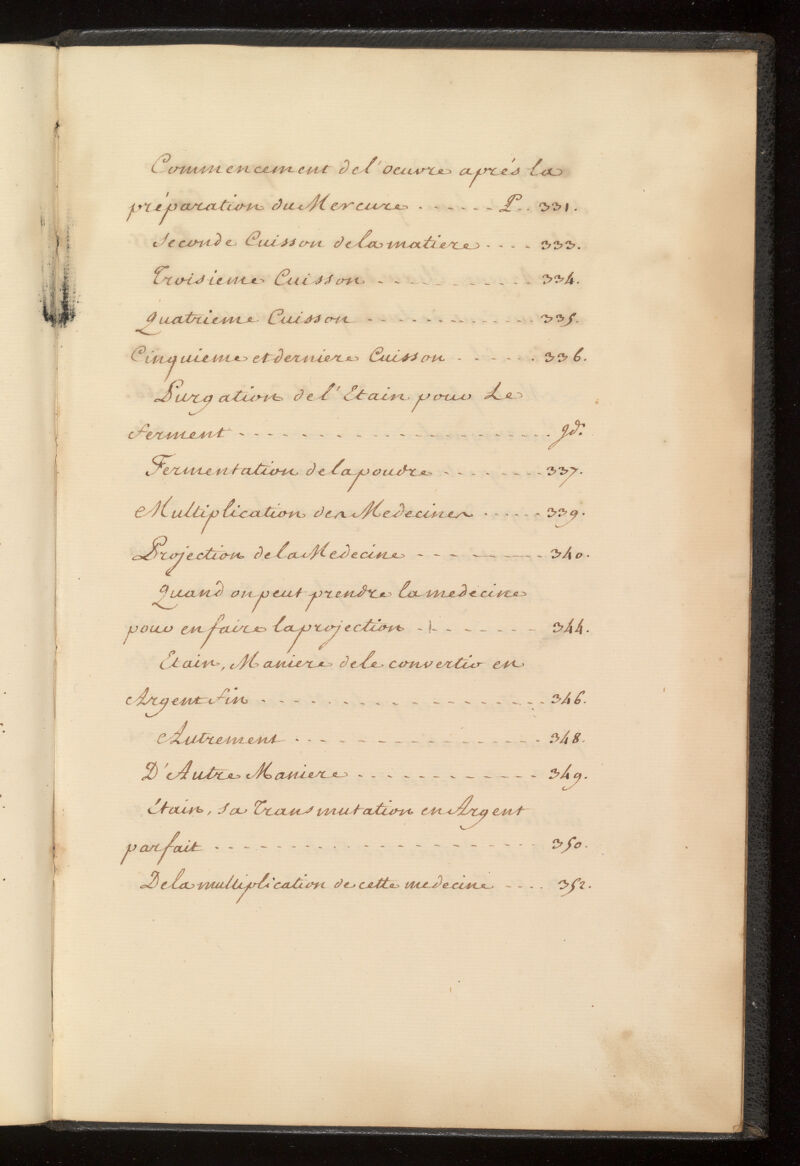 Commencement de l'oeuvre aprés la
préparation du Mercure . - - - - - P. . 331.
Seconde Cuisson de la matiere . - - - 333.
Troisieme Cuisson - - - - - - - - - 334.
Quatrieme Cuisson - - - - - - - - - - 335.
Cinquieme et derniere Cuisson - - - - - 336.
Purgation de l'Etain pour Le
ferment - - - - - - - - - - - - - - - - . jd.
Fermentation de la poudre - - - - - - - 337.
Multiplication des Medecines - - - - - 339.
Projection de la Medecine - - - - - - - 340.
Quand on peut prendre la medecine
pour en faire la projection - - - - - - - 344.
Etain, Maniere de le convertir en
Argent fin - - - - - - - - - - - - - - - - 346.
Autrement - - - - - - - - - - - - - - 348.
D'Autre Maniere - - - - - - - - - - - 349.
Etain, sa Transmutation en Argent
parfait - - - - - - - - - - - - - - - - - 350.
De la multiplication de cette medecine - - - - 352.